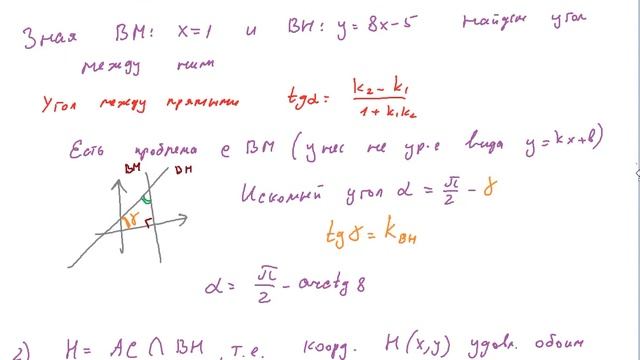 Зная BM: x=1 и BH: y=8x-5 найдем угол
между ними
Угол между прямыми tgα = (k₂ - k₁)/(1 + k₁k₂)
Есть проблема с BM (у нас не ур-е вида y=kx+b)
BM BH
Искомый угол α = π/2 - γ
γ
tgγ = k_BH
α = π/2 - arctg 8
2) H = AC ∩ BH, т.е. коорд. H(x,y) удовл. обоим